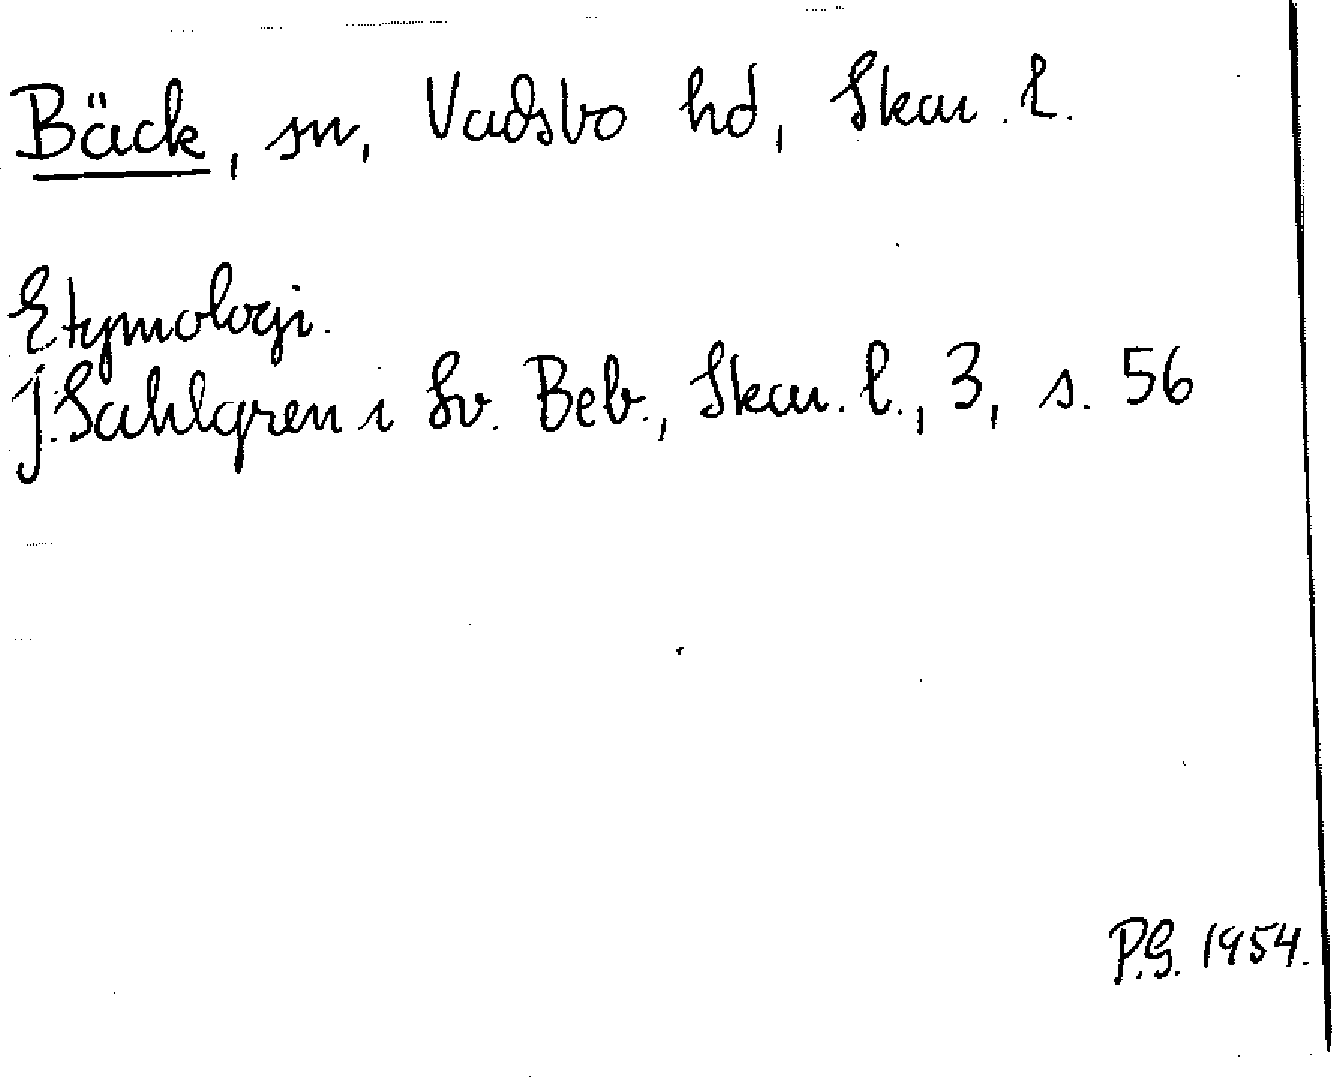 Bäck, sn, Vadsbo hd, Skar. l.
Etymologi.
J. Sahlgren i Sv. Beb., Skar. l., 3, s. 56
P.G. 1954.